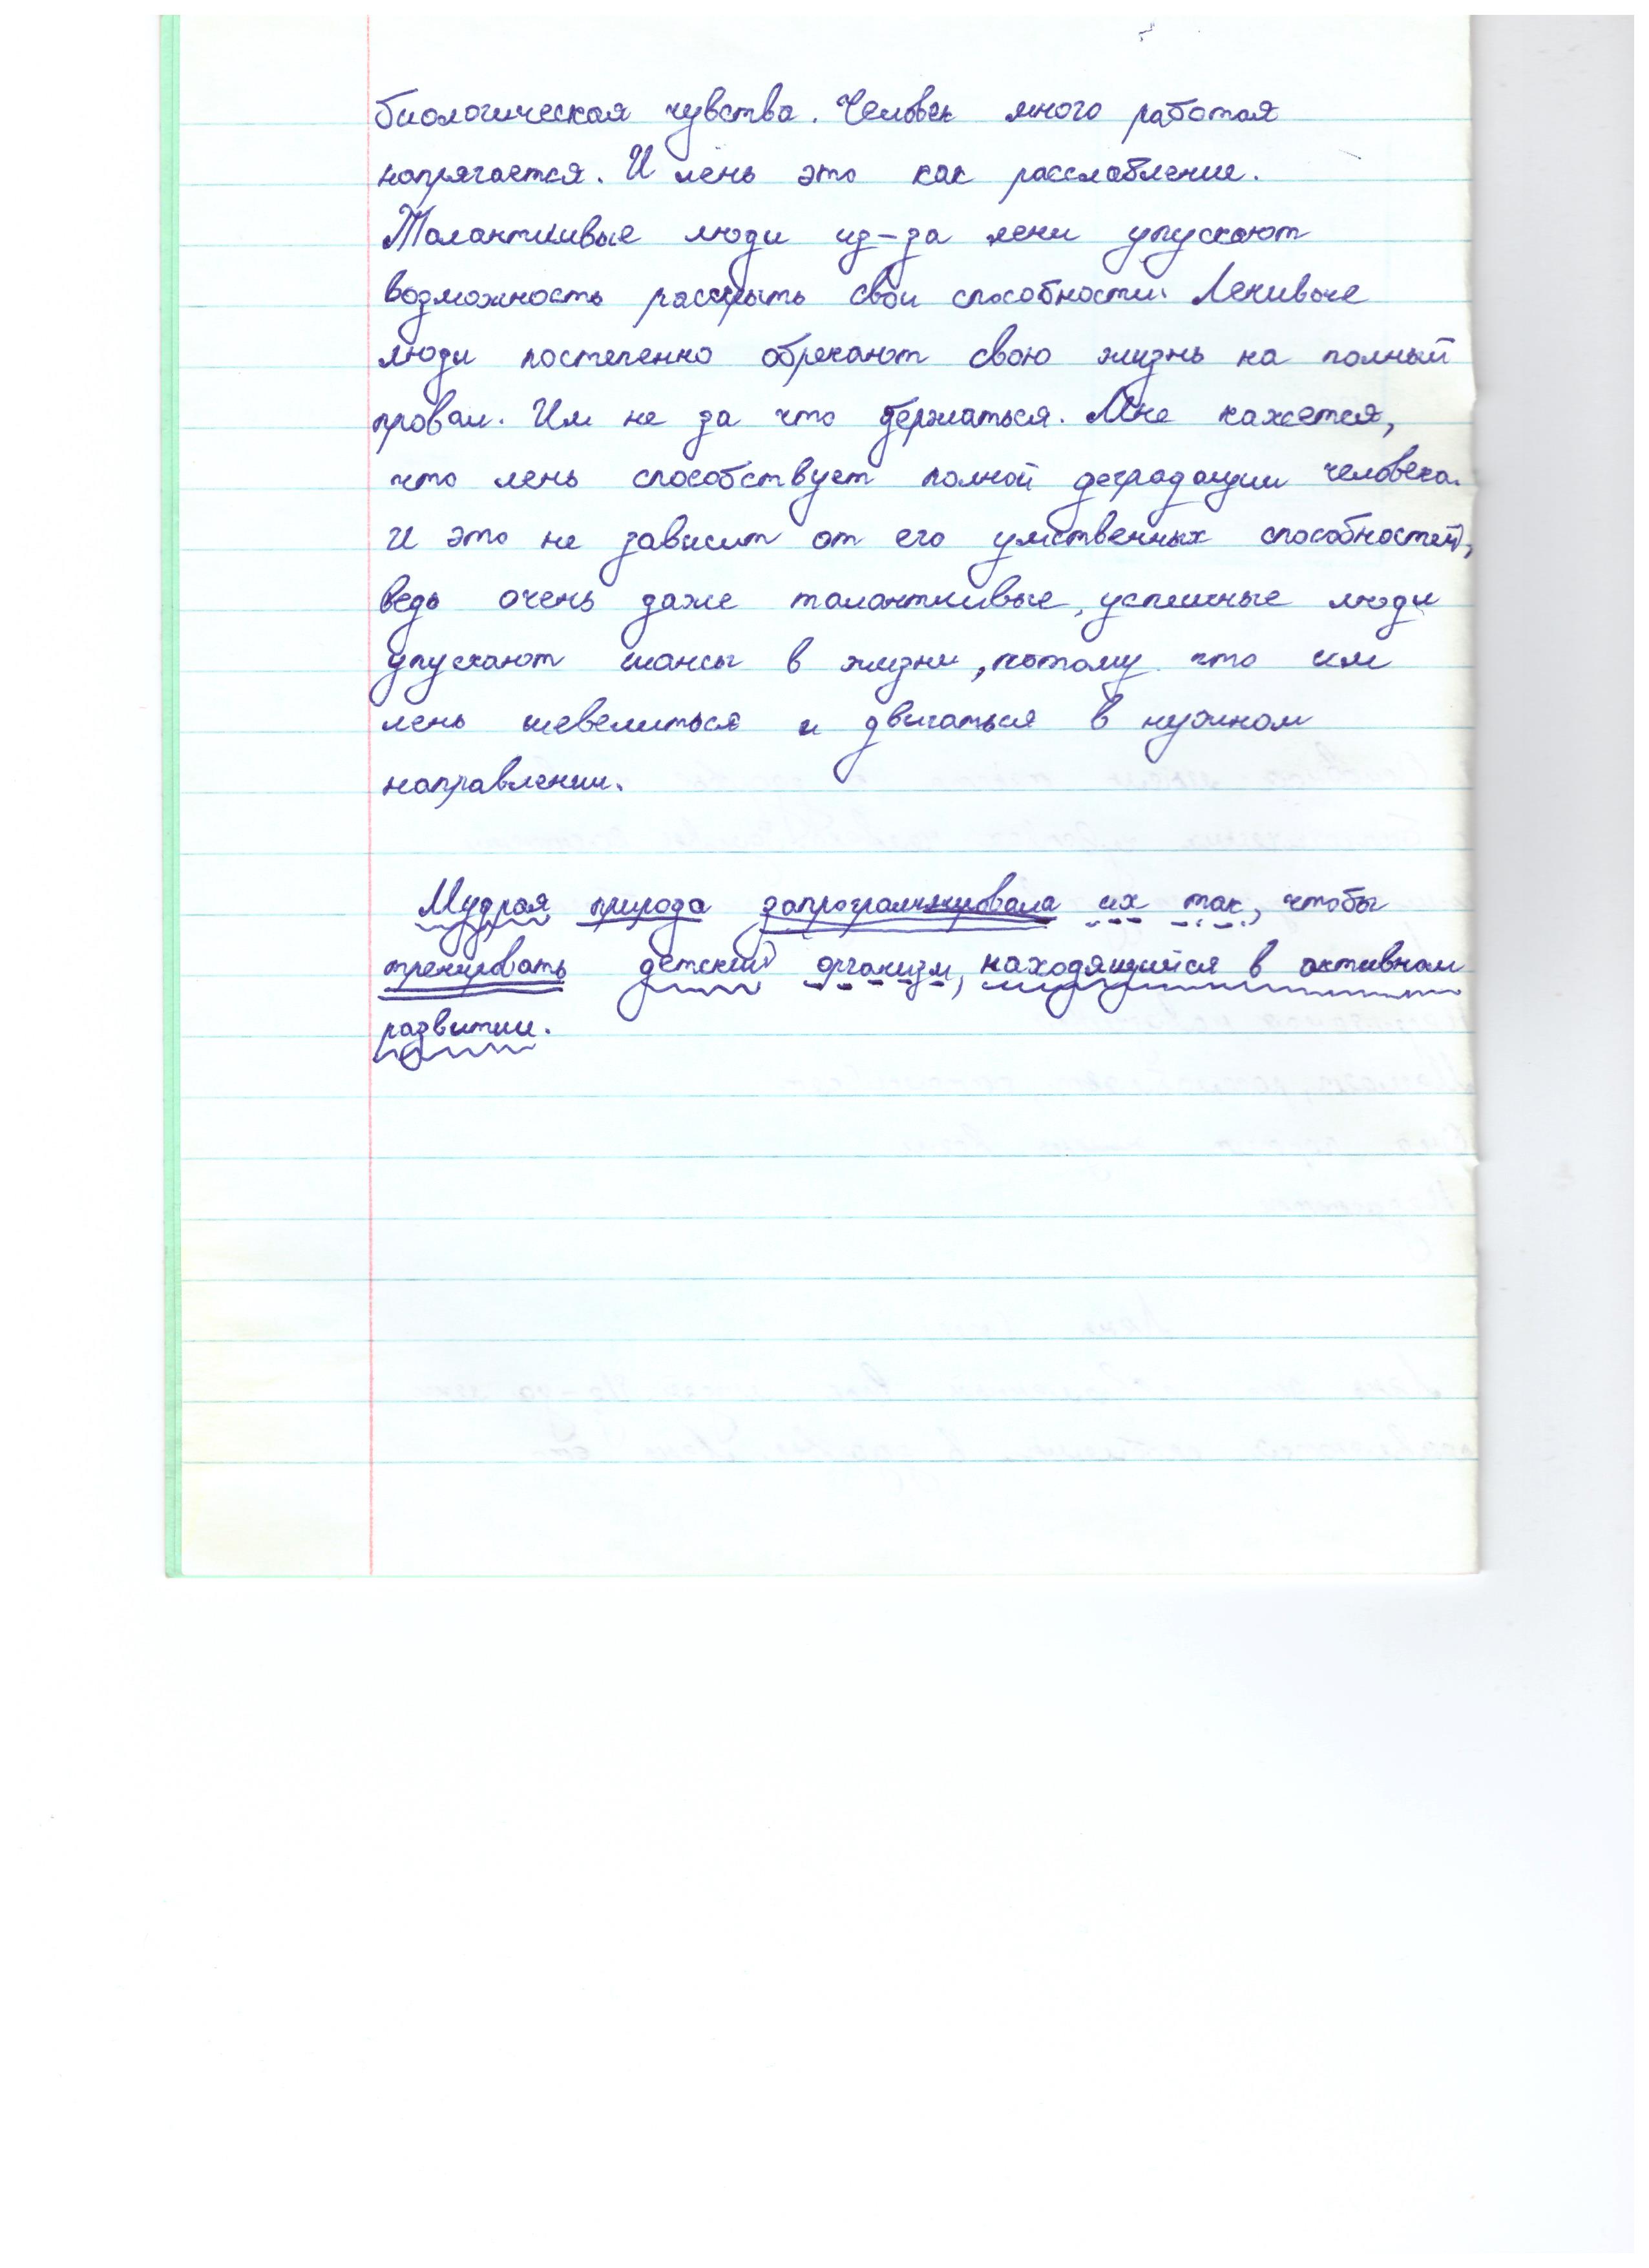 биологическая чувства. Человек много работая
напрягается. И лень это как расслабление.
Талантливые люди из-за лени упускают
возможность раскрыть свои способности. Ленивые
люди постепенно обрекают свою жизнь на полный
провал. Им не за что держаться. Мне кажется,
что лень способствует полной деградации человека.
И это не зависит от его умственных способностей,
ведь очень даже талантливые, успешные люди
упускают шансы в жизни, потому что им
лень шевелиться и двигаться в нужном
направлении.
Мудрая природа запрограммировала их так, чтобы
тренировать детский организм, находящийся в активном
развитии.